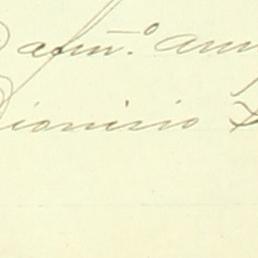 afm.º am
Dionisio